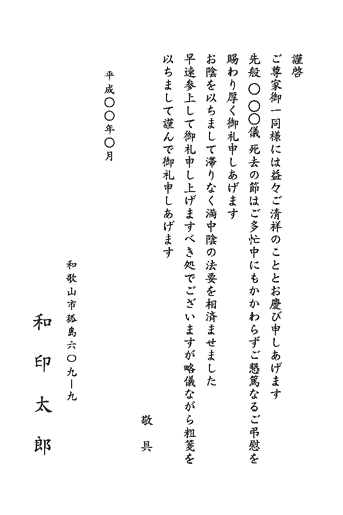 謹啓
ご尊家御一同様には益々ご清祥のこととお慶び申しあげます
先般 〇 〇〇儀 死去の節はご多忙中にもかかわらずご懇篤なるご弔慰を
賜わり厚く御礼申しあげます
お陰を以ちまして滞りなく満中陰の法要を相済ませました
早速参上して御礼申し上げますべき処でございますが略儀ながら粗箋を
以ちまして謹んで御礼申しあげます
敬具
平成〇〇年〇月
和歌山市狐島六〇九―九
和印太郎